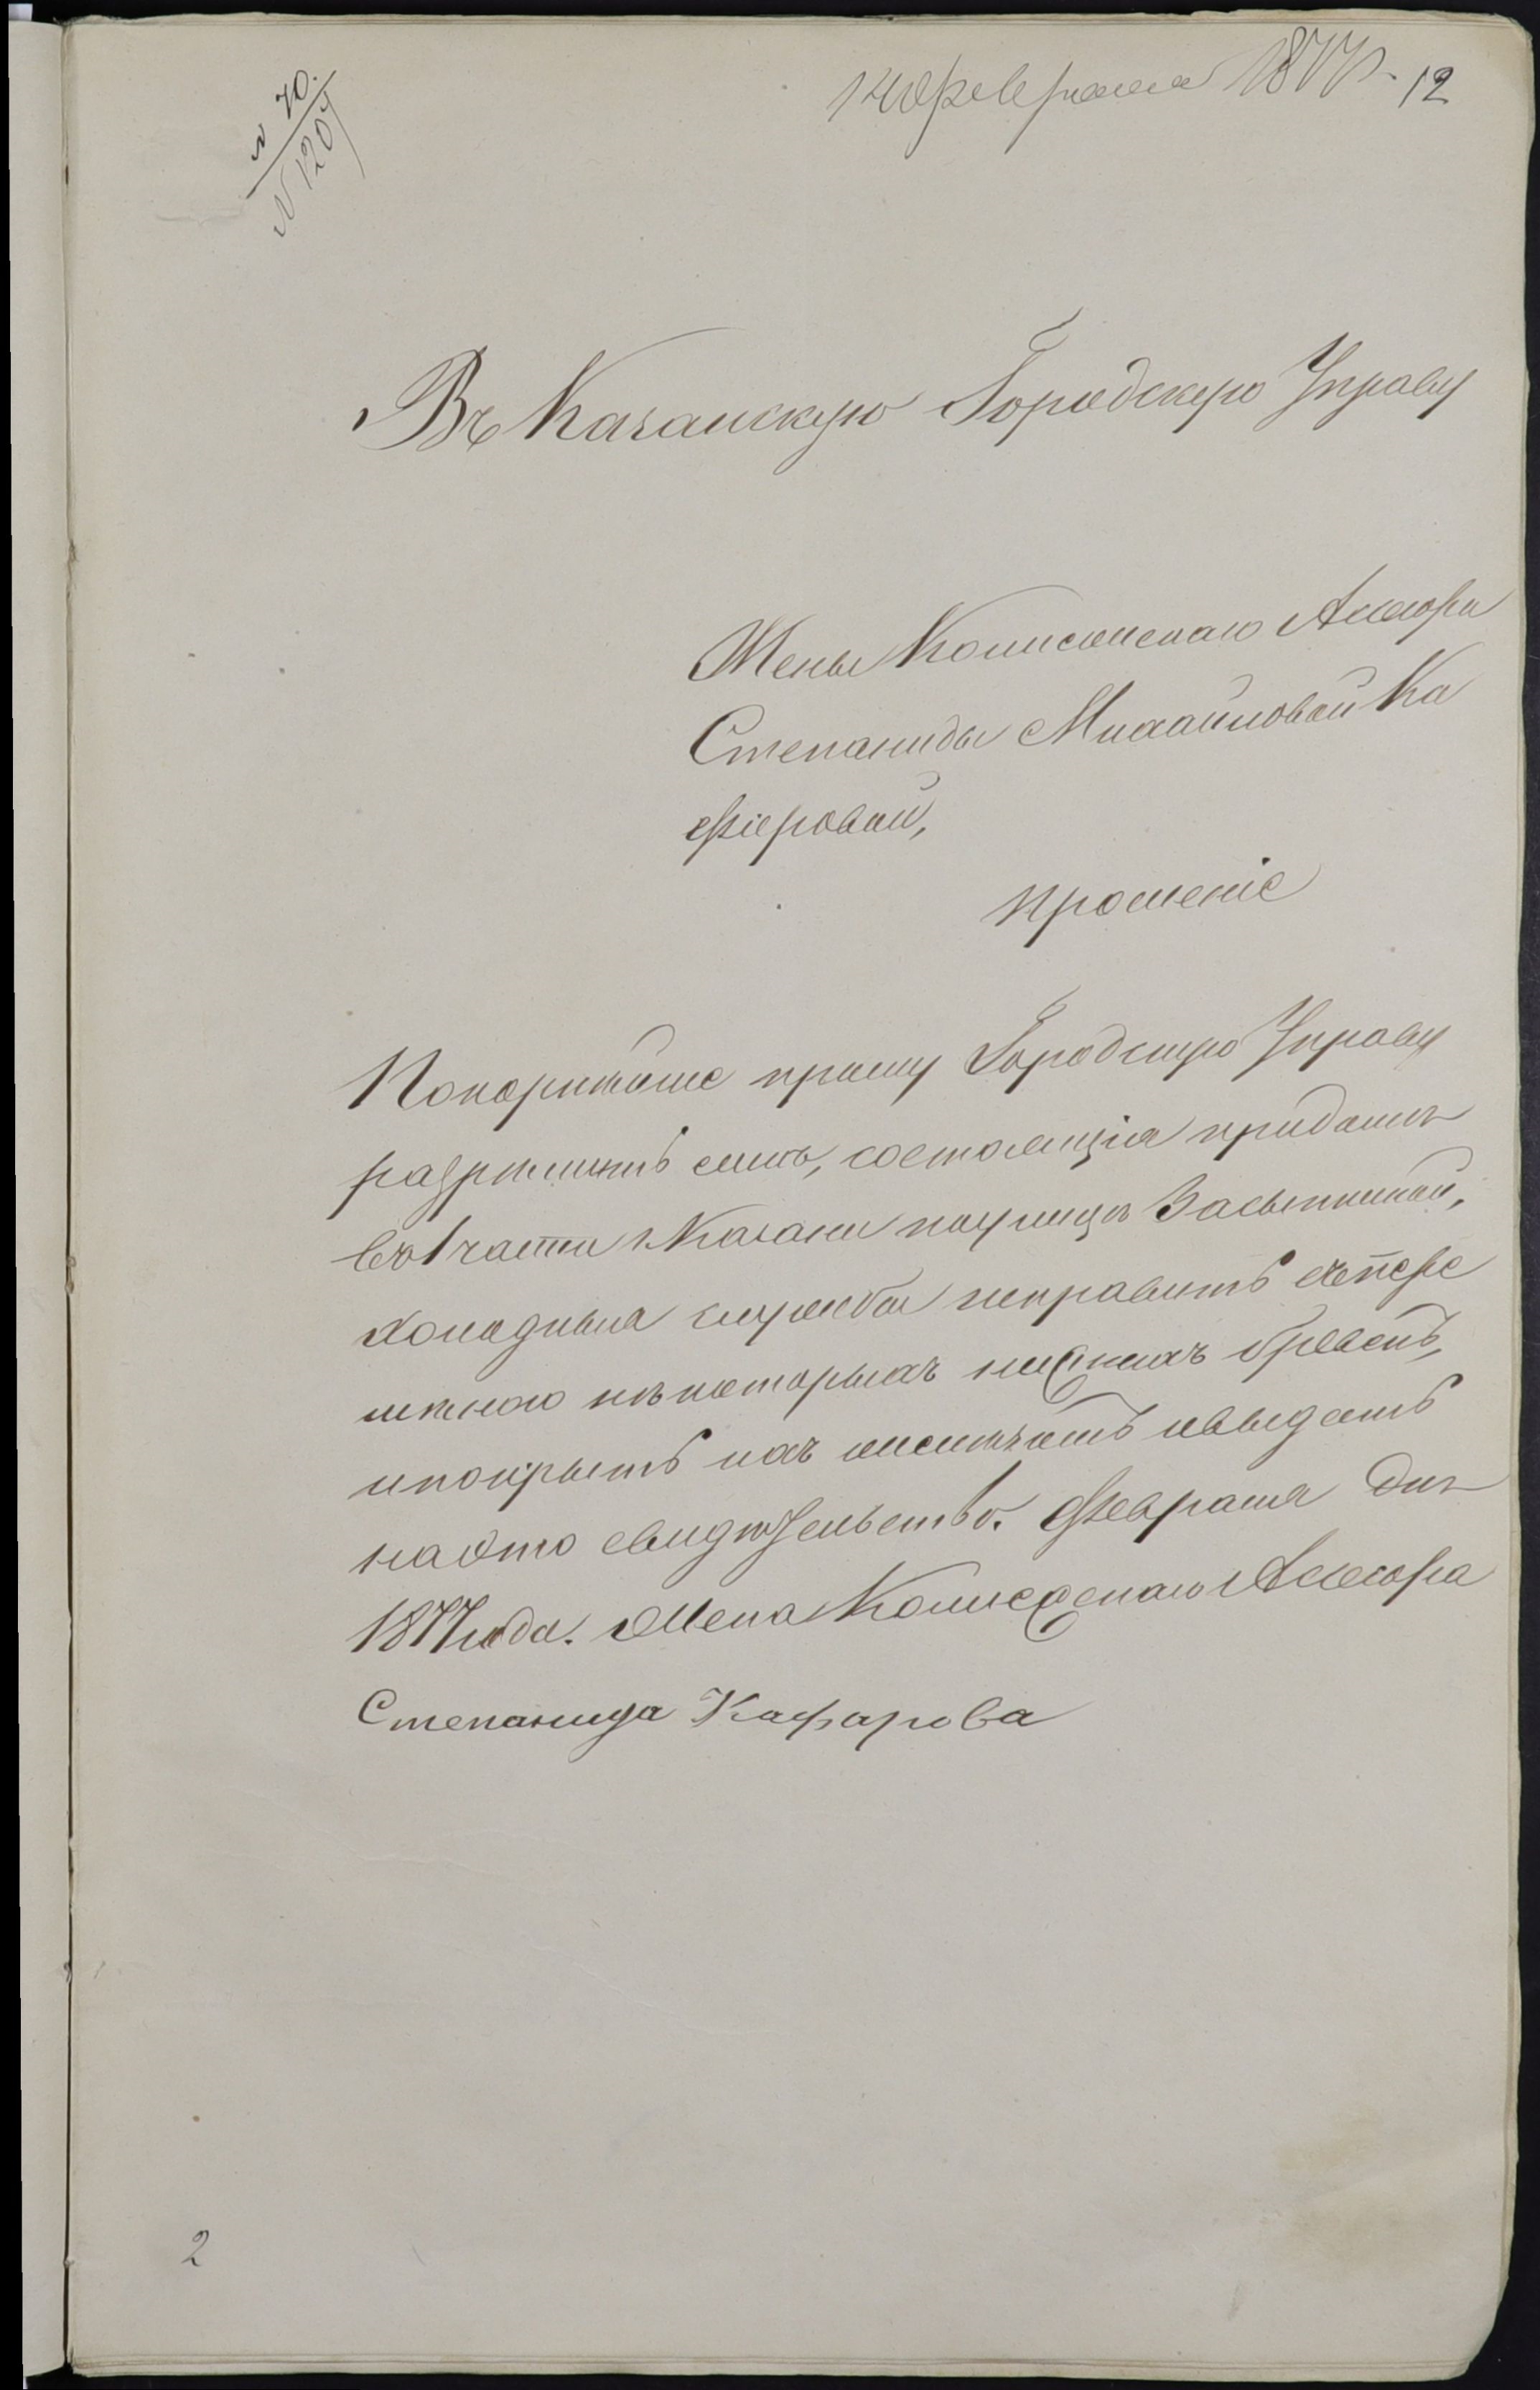 14 февраля 1877 г. 12
№ 70.
№ 1204
Въ Казанскую Городскую Управу
Жены Колижскаго Ассесора
Степаниды Михайловой Ка
фіеровой,
прошеніе
Покорнѣйше прошу Городскую Управу
разрѣшить мнѣ, состоящія придомѣ
въ 1 части г. Казани поулицѣ Засыпкиной,
холодныя службы исправить съ пере
мѣною нѣкоторыхъ нижнихъ бревенъ,
ипокрыть ихъ и выдать
наэто свидѣтельство. Февраля дня
1877 года. Жена Колижскаго Ассесора
Степанида Кафарова
2